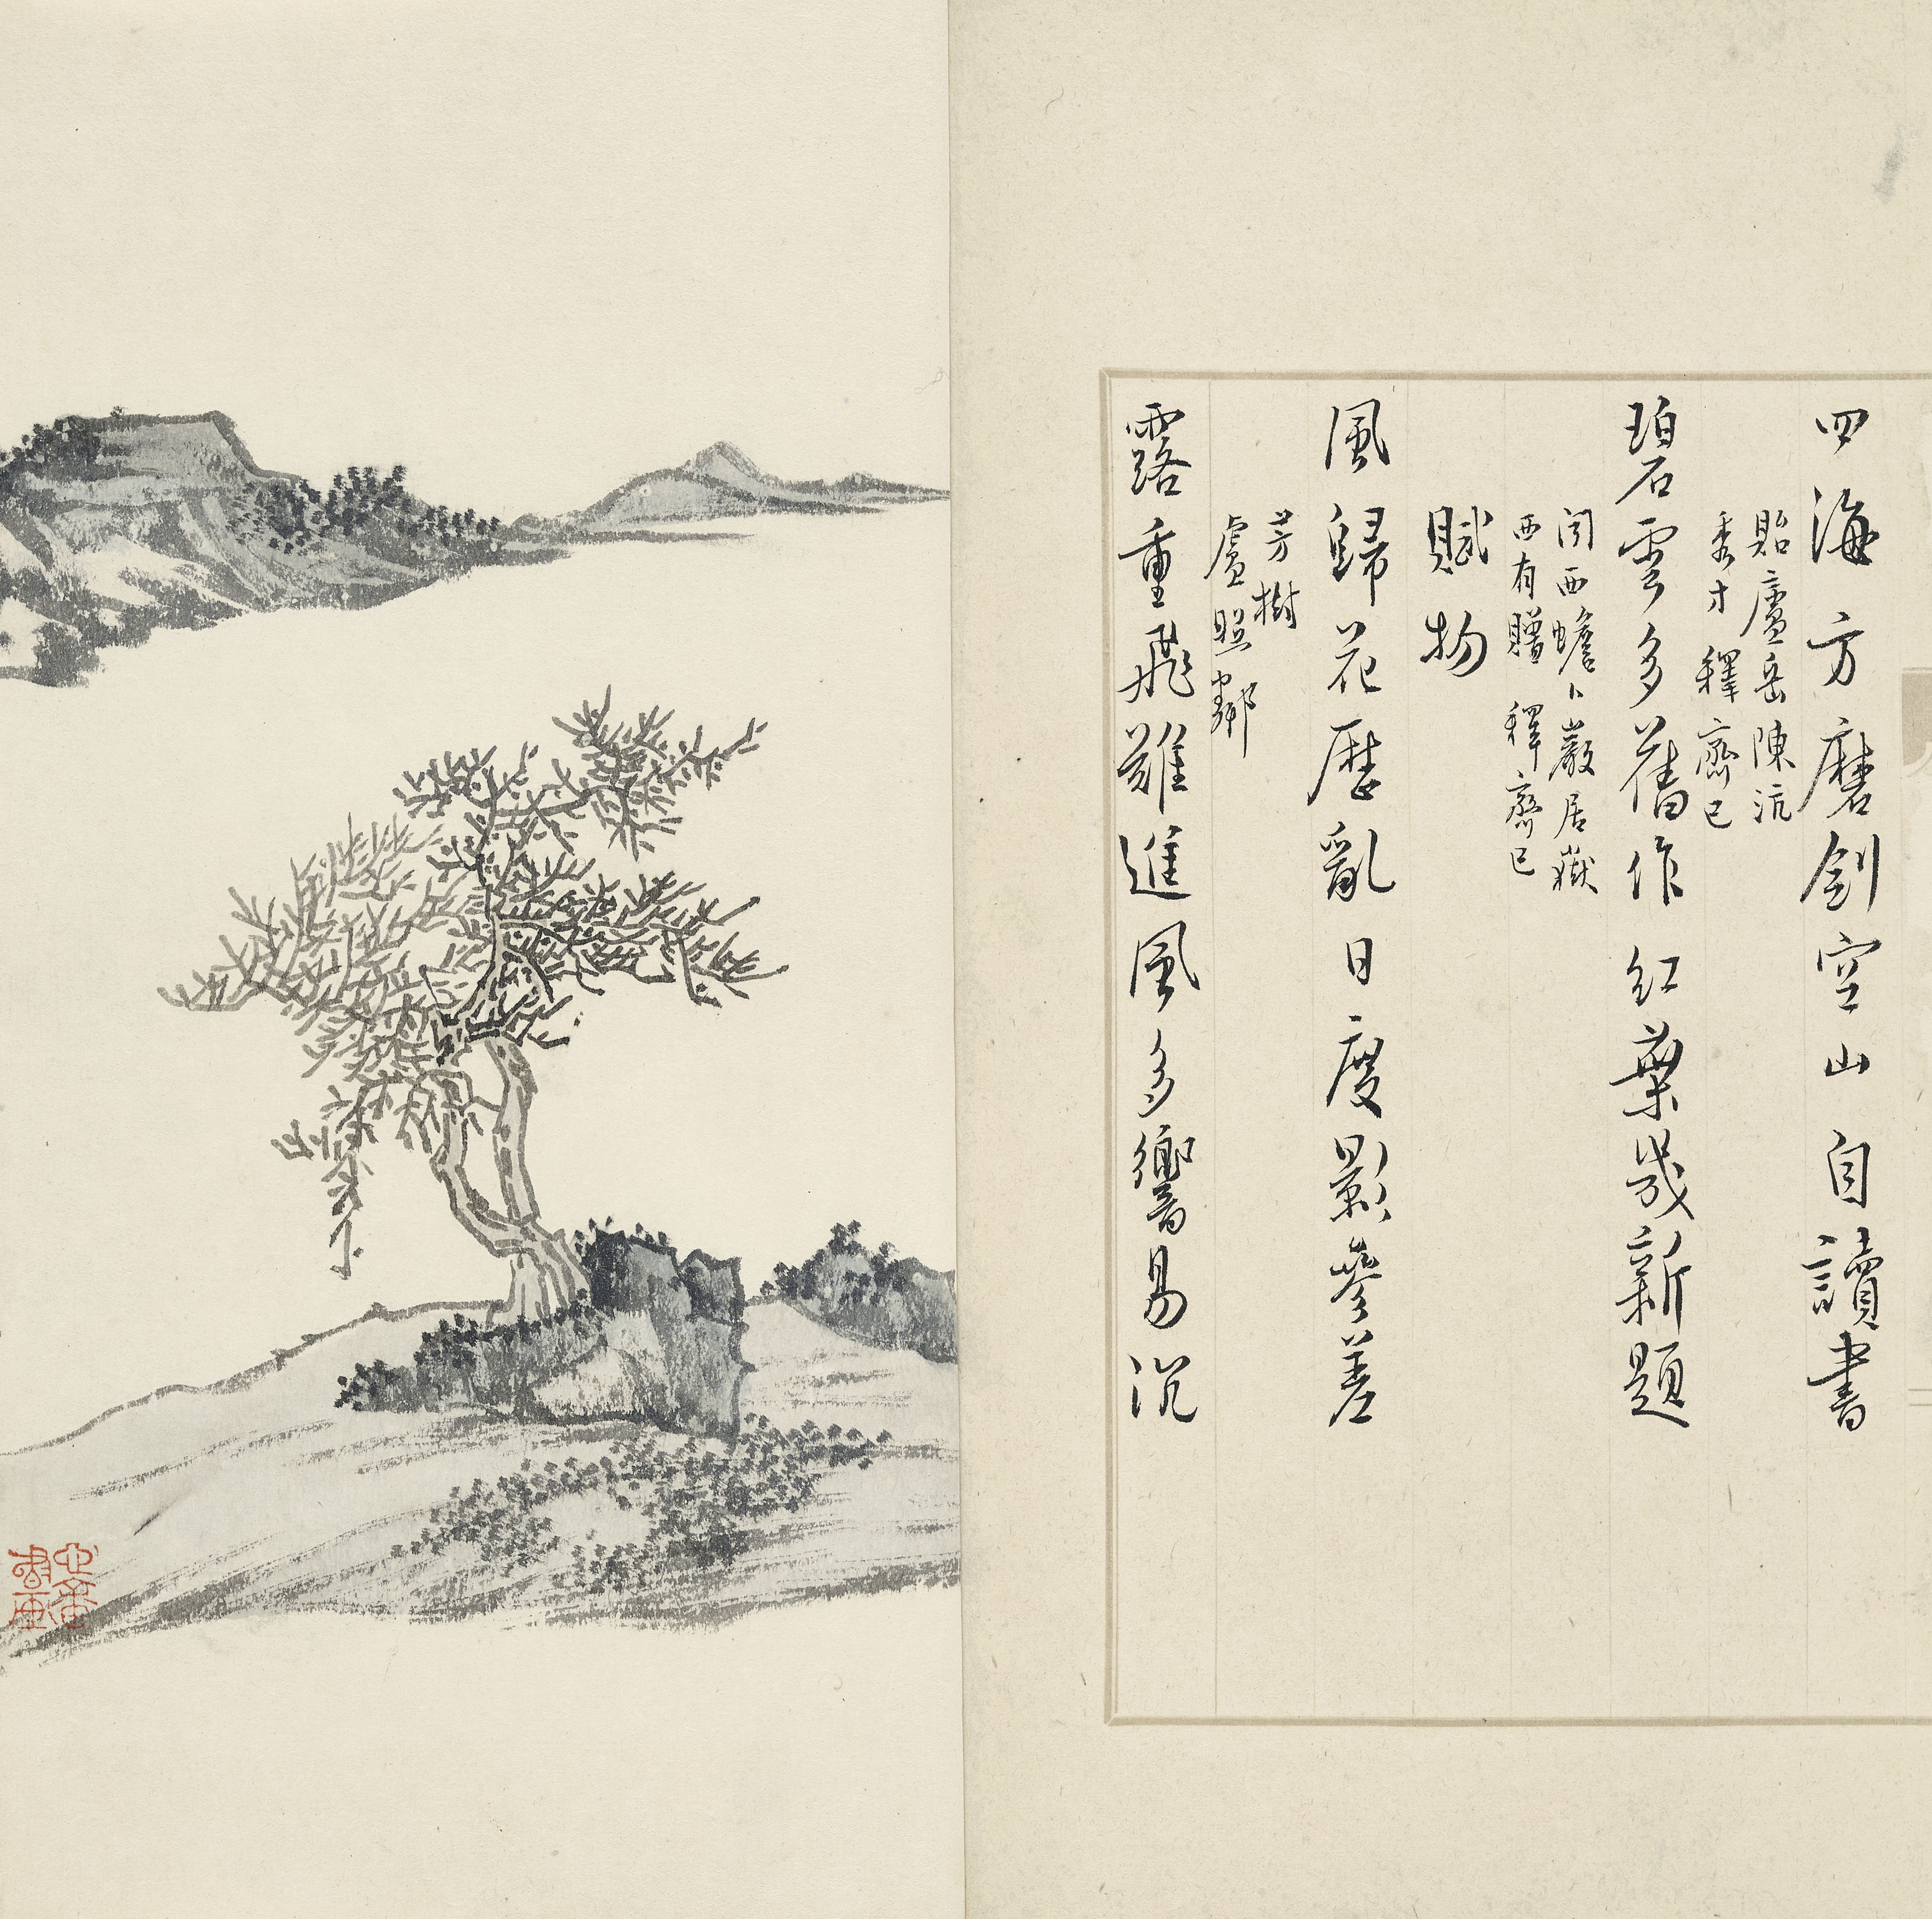 四海方磨劍空山自讀書
貽廬岳陳沆
秀才 釋齊己
碧雲多舊作紅葉幾新題
聞西蟾卜巖居嶽
西有贈 釋齊己
賦物
風歸花歷亂日度影參差
芳樹
盧照鄰
露重飛難進風多響易沉
心畬
書畫